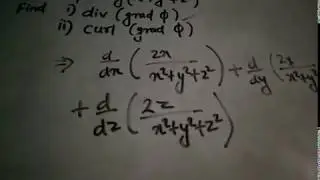 Find i) div (grad φ)
ii) curl (grad φ)
⇒ d/dx (2x/x²+y²+z²) + d/dy (2x/x²+y²
+ d/dz (2z/x²+y²+z²)